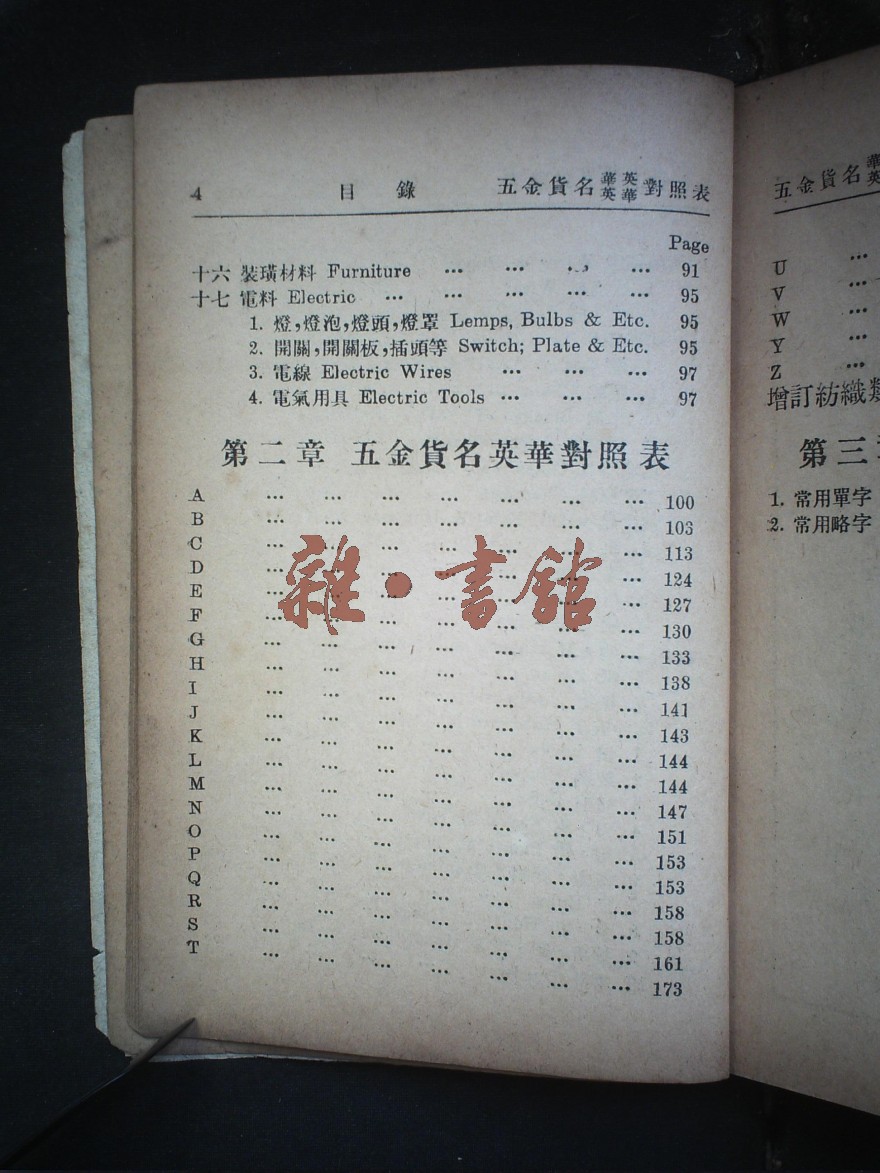 4 目錄 五金貨名華英英華對照表
Page
十六 裝璜材料 Furniture ... ... ... ... 91
十七 電料 Electric ... ... ... ... ... 95
1. 燈,燈泡,燈頭,燈罩 Lemps, Bulbs & Etc. 95
2. 開關,開關板,插頭等 Switch; Plate & Etc. 95
3. 電線 Electric Wires ... ... ... 97
4. 電氣用具 Electric Tools ... ... ... 97
第二章 五金貨名英華對照表
A ... ... ... ... ... ... ... 100
B ... ... ... ... ... ... ... 103
C ... ... ... ... ... ... ... 113
D ... ... ... ... ... ... ... 124
E ... ... ... ... ... ... ... 127
F ... ... ... ... ... ... ... 130
G ... ... ... ... ... ... ... 133
H ... ... ... ... ... ... ... 138
I ... ... ... ... ... ... ... 141
J ... ... ... ... ... ... ... 143
K ... ... ... ... ... ... ... 144
L ... ... ... ... ... ... ... 144
M ... ... ... ... ... ... ... 147
N ... ... ... ... ... ... ... 151
O ... ... ... ... ... ... ... 153
P ... ... ... ... ... ... ... 153
Q ... ... ... ... ... ... ... 158
R ... ... ... ... ... ... ... 158
S ... ... ... ... ... ... ... 161
T ... ... ... ... ... ... ... 173
雜·書館
五金貨名華英
U ...
V ...
W ...
Y ...
Z ...
增訂紡織類
第三
1. 常用單字
2. 常用略字